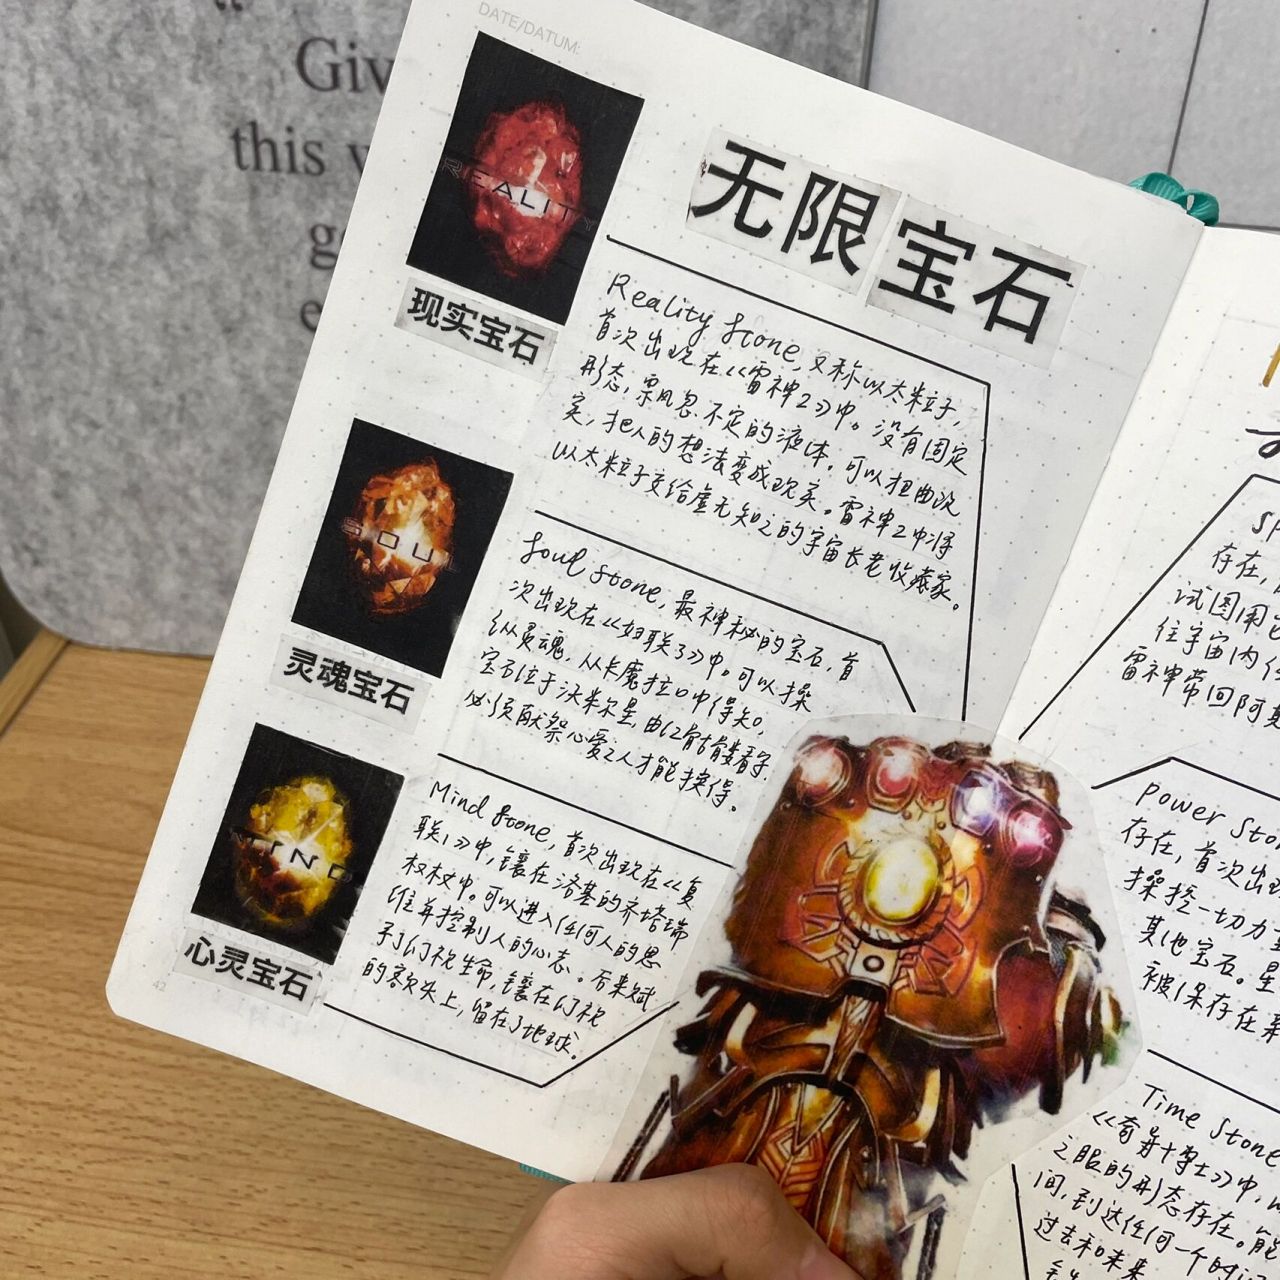 “
Giv
this w
g
e
DATE/DATUM:
REALITY
现实宝石
无限宝石
Reality Stone, 又称以太粒子,
首次出现在《雷神2》中。没有固定
形态, 飘忽不定的液体。可以扭曲现
实, 把人的想法变成现实。雷神2中将
以太粒子交给虚无知之的宇宙长老收藏家。
SOUL
灵魂宝石
Soul Stone, 最神秘的宝石, 首
次出现在《妇联3》中。可以操
纵灵魂, 从卡魔拉口中得知,
宝石位于沃米尔星, 由红骷髅看守.
必须献祭心爱之人才能换得。
MIND
心灵宝石
Mind Stone, 首次出现在《复
联1》中, 镶在洛基的齐塔瑞
权杖中。可以进入任何人的思
维并控制人的心态。后来赋
予幻视生命, 镶在幻视
的额头上, 留在了地球。
42
存在,
试图用
往宇宙内
雷神带回阿
Power Sto
存在, 首次出现
操控一切力
其他宝石。星
被保存在
Time Stone
《奇异博士》中,
之眼的形态存在。能
间, 到达任何一个时
过去和未来